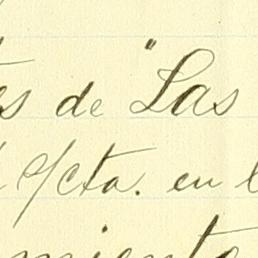 es de "Las
Ycta. en l
miento